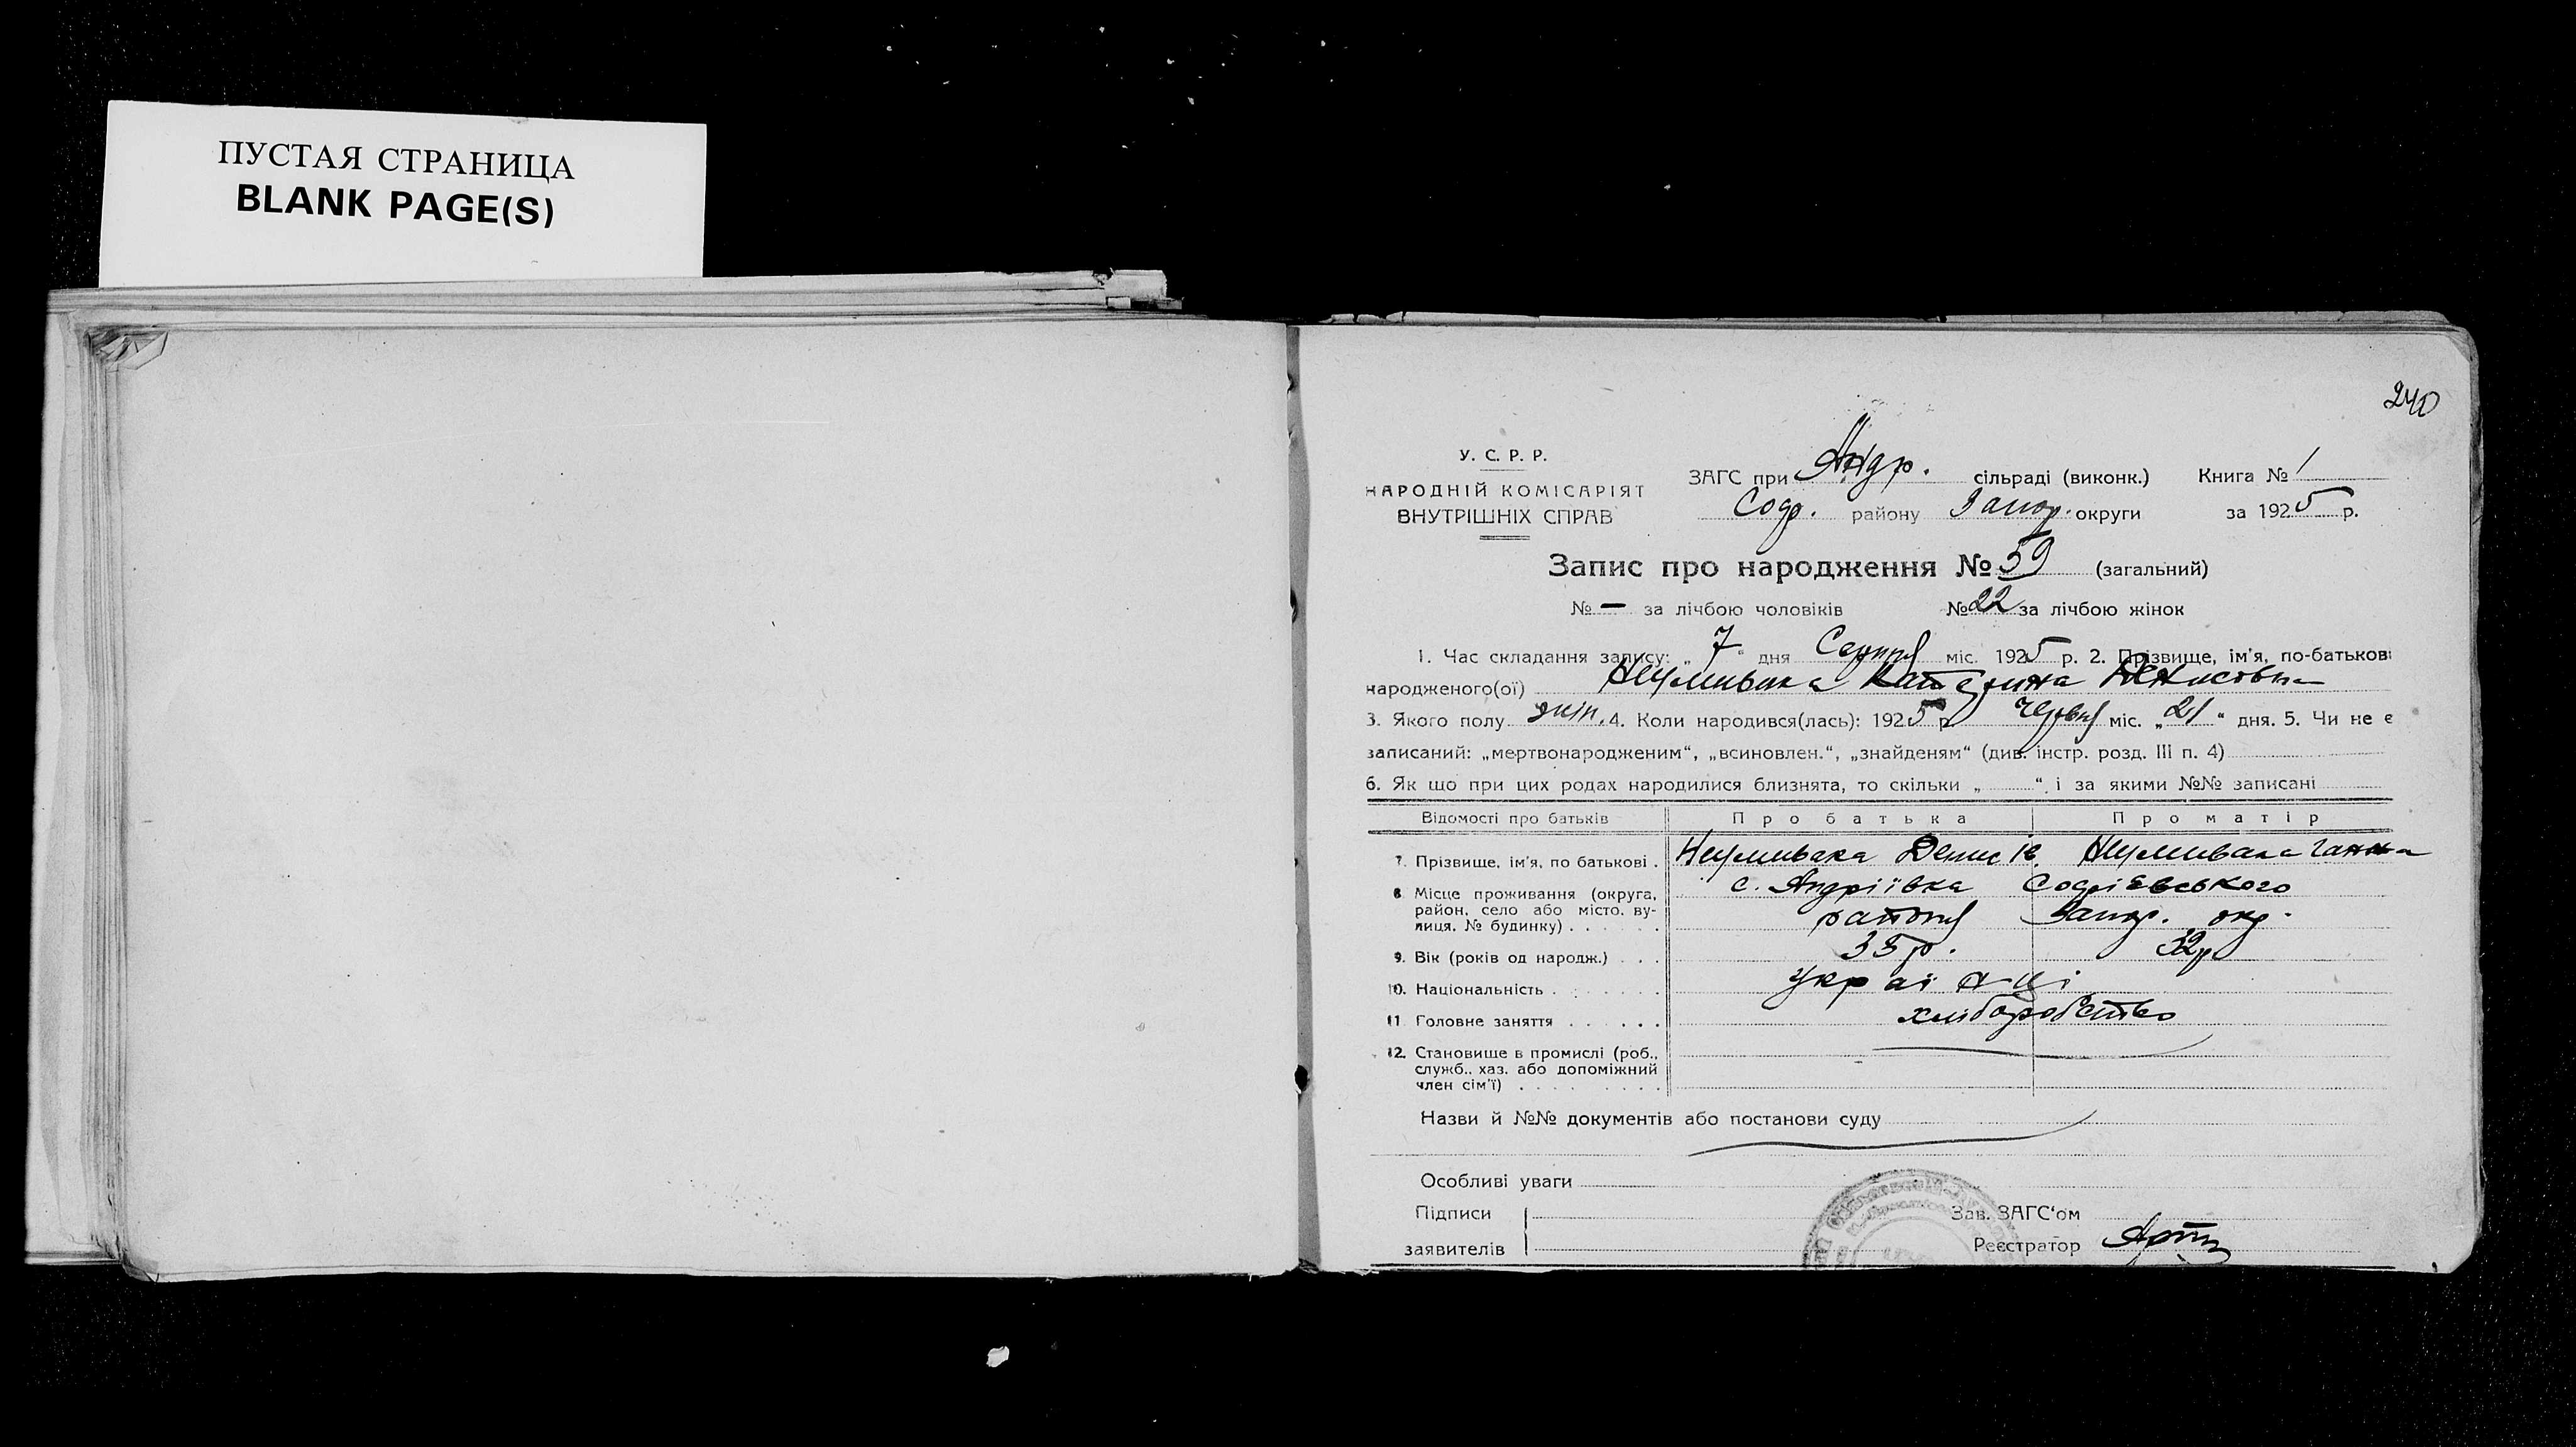 ПУСТАЯ СТРАНИЦА
BLANK PAGE(S)
240
У. С. Р. Р.
НАРОДНІЙ КОМІСАРІЯТ
ВНУТРІШНІХ СПРАВ
ЗАГС при Андр. сільраді (виконк.) Книга № 1
Софр. району Запор. округи за 1925 р.
Запис про народження № 59 (загальний)
№ — за лічбою чоловіків № 22 за лічбою жінок
1. Час складання запису: „ 7 “ дня Серпня міс. 1925 р. 2. Прізвище, ім'я, по-батькові
народженого(ої) Неумивака Катерина Денисовна
3. Якого полу жін. 4. Коли народився(лась): 1925 р червня міс. „ 21 “ дня. 5. Чи не є
записаний: „мертвонародженим“, „всиновлен.“, „знайденям“ (див. інстр. розд. III п. 4)
6. Як що при цих родах народилися близнята, то скільки „ “ і за якими №№ записані
Відомості про батьків Про батька Про матір
7. Прізвище, ім'я, по батькові . Неумивака Денис Неумивака Ганна
8 Місце проживання (округа, район, село або місто, вулиця, № будинку) . . . . . . с. Андріївка Софіевського
району Запор. окр.
9. Вік (років од народж.) . . . 35 р. 32 р
10. Національність . . . . . . . Українці
11 Головне заняття . . . . . . хліборобство
12. Становище в промислі (роб.,
служб., хаз. або допоміжний
член сім'ї) . . . . . . . . .
Назви й №№ документів або постанови суду
Особливі уваги
Підписи Зав. ЗАГС'ом
заявителів Реєстратор